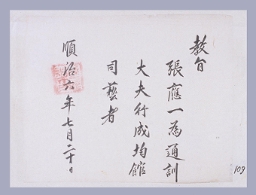 教旨
張應一為通訓
大夫行成均館
司藝者
順治六年七月二十日
109